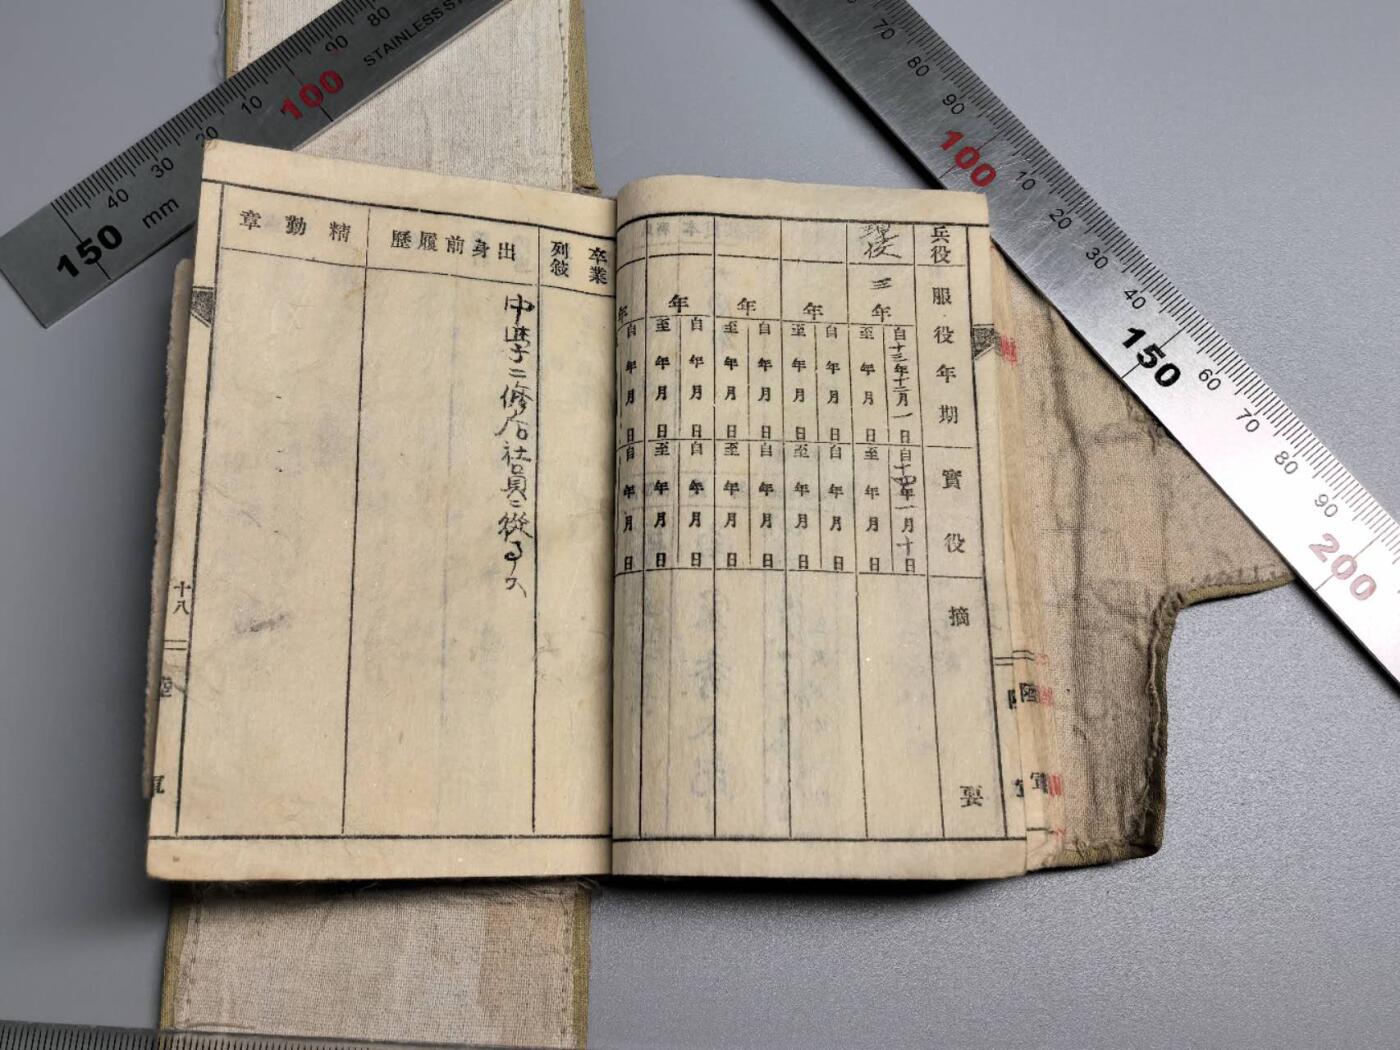 兵役
服役年期
實役
摘要
現役
三年
自十三年十二月一日
至年月日
自十四年一月十日
至年月日
年
自年月日
至年月日
自年月日
至年月日
年
自年月日
至年月日
自年月日
至年月日
年
自年月日
至年月日
自年月日
至年月日
年
自年月日
自年月日
陸軍
卒業列敍
出身前履歷
中學ニ修
社員ニ從事ス
精勤章
十八
陸軍
80
90
100
10
20
30
40
150
mm
STAINLESS
70
80
90
100
10
20
30
40
150
60
70
80
90
200